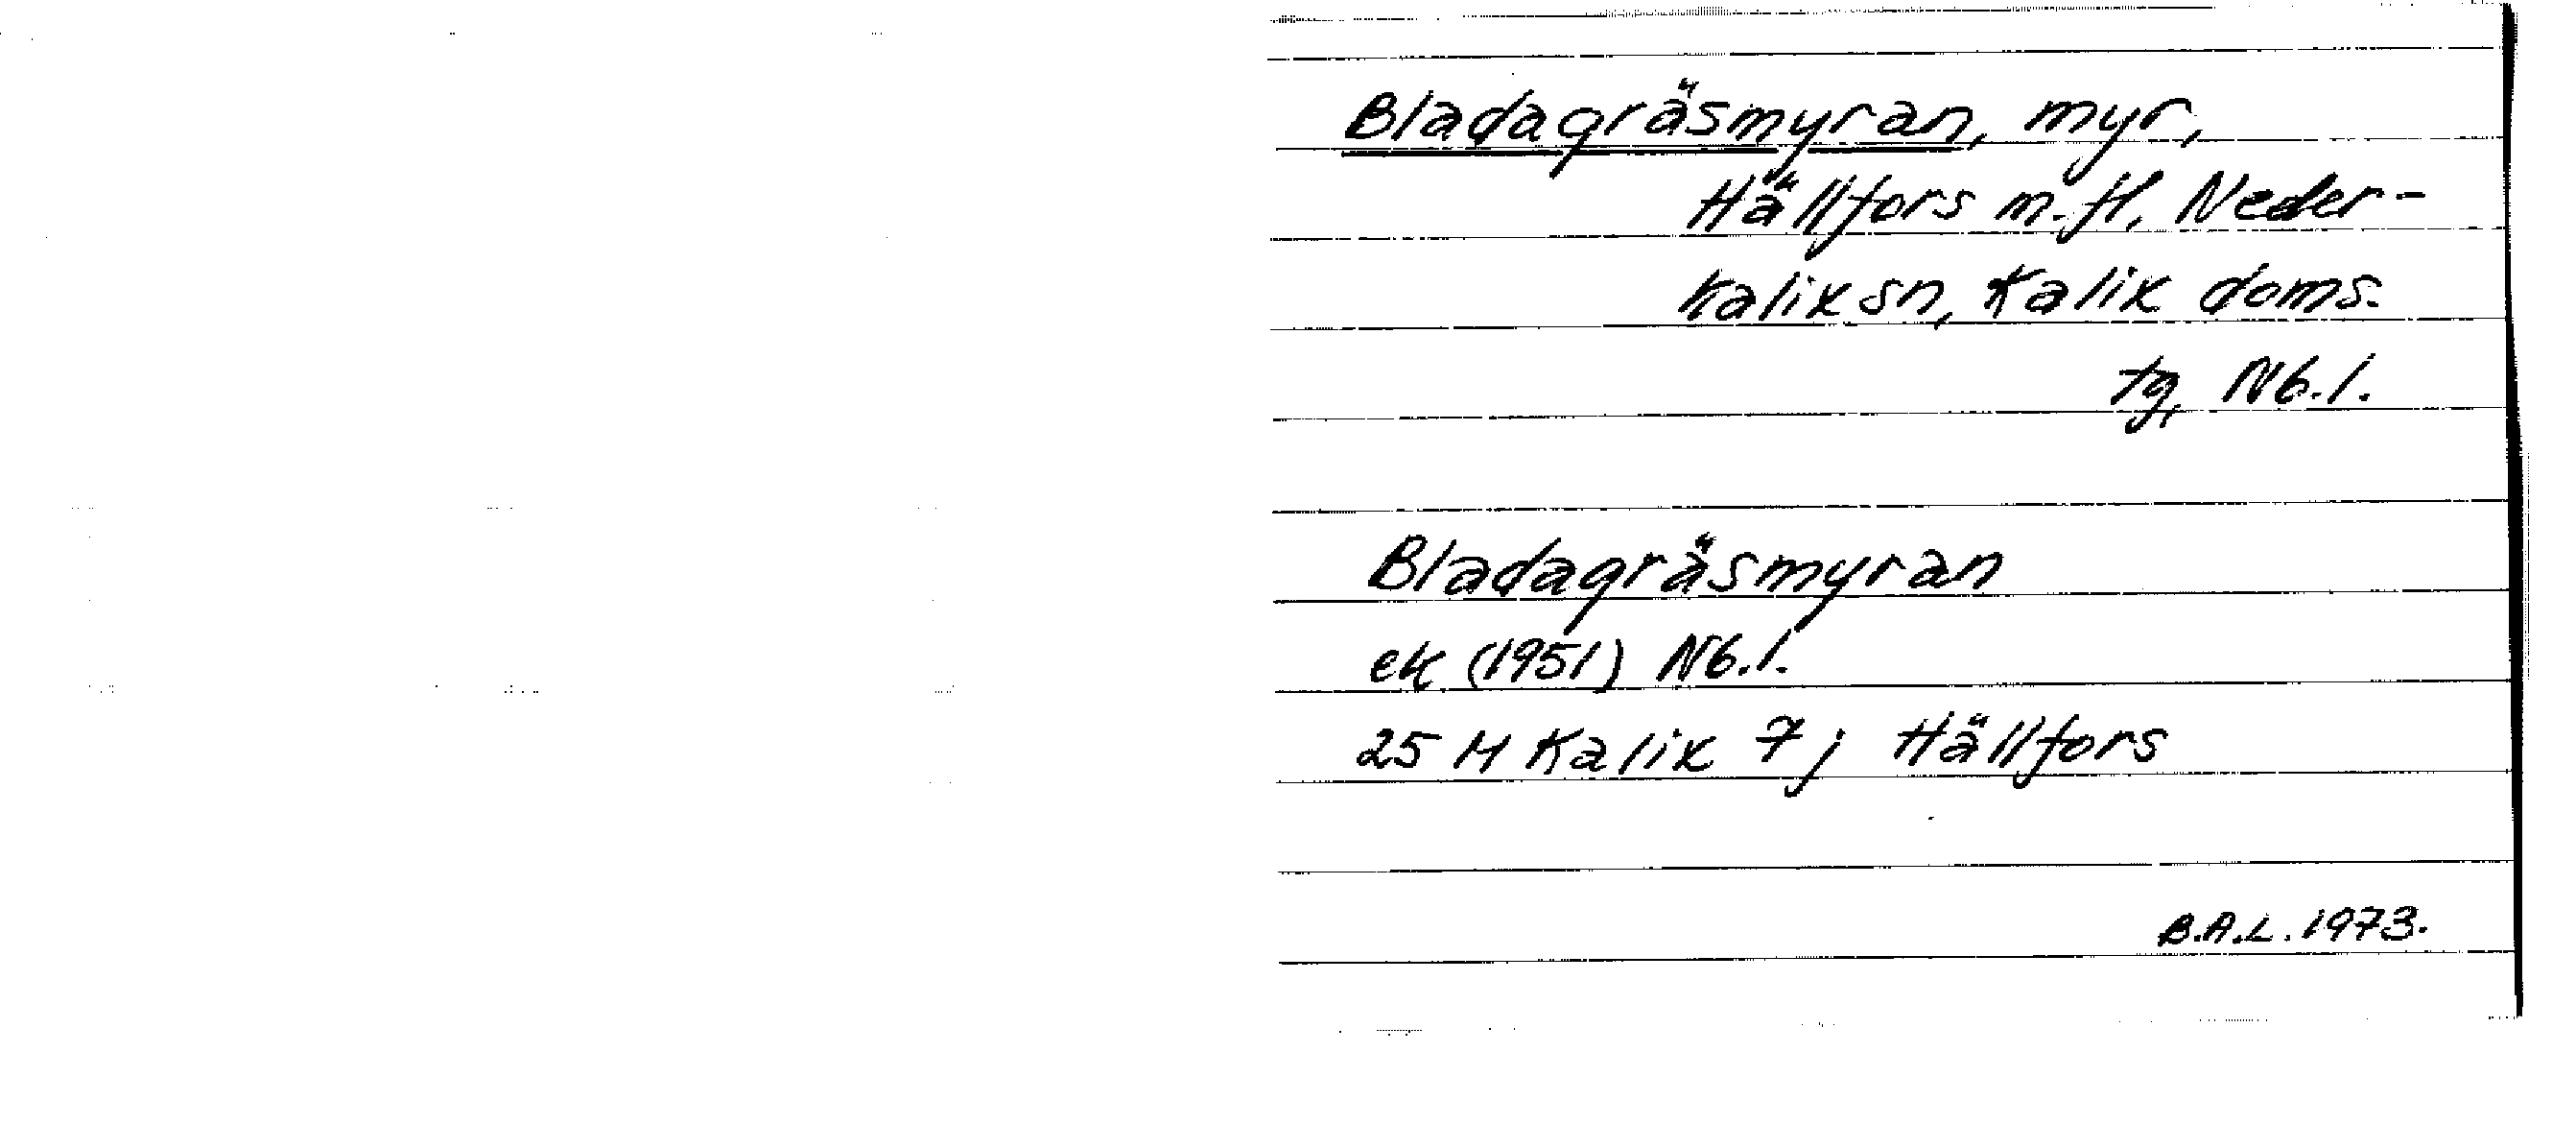 Bladagräsmyran, myr,
Hällfors m.fl. Neder-
kalix sn, Kalix doms.
tg, Nb.l.
Bladagräsmyran
ek (1951) Nb.l.
25 M Kalix 7j Hällfors
B.A.L. 1973.